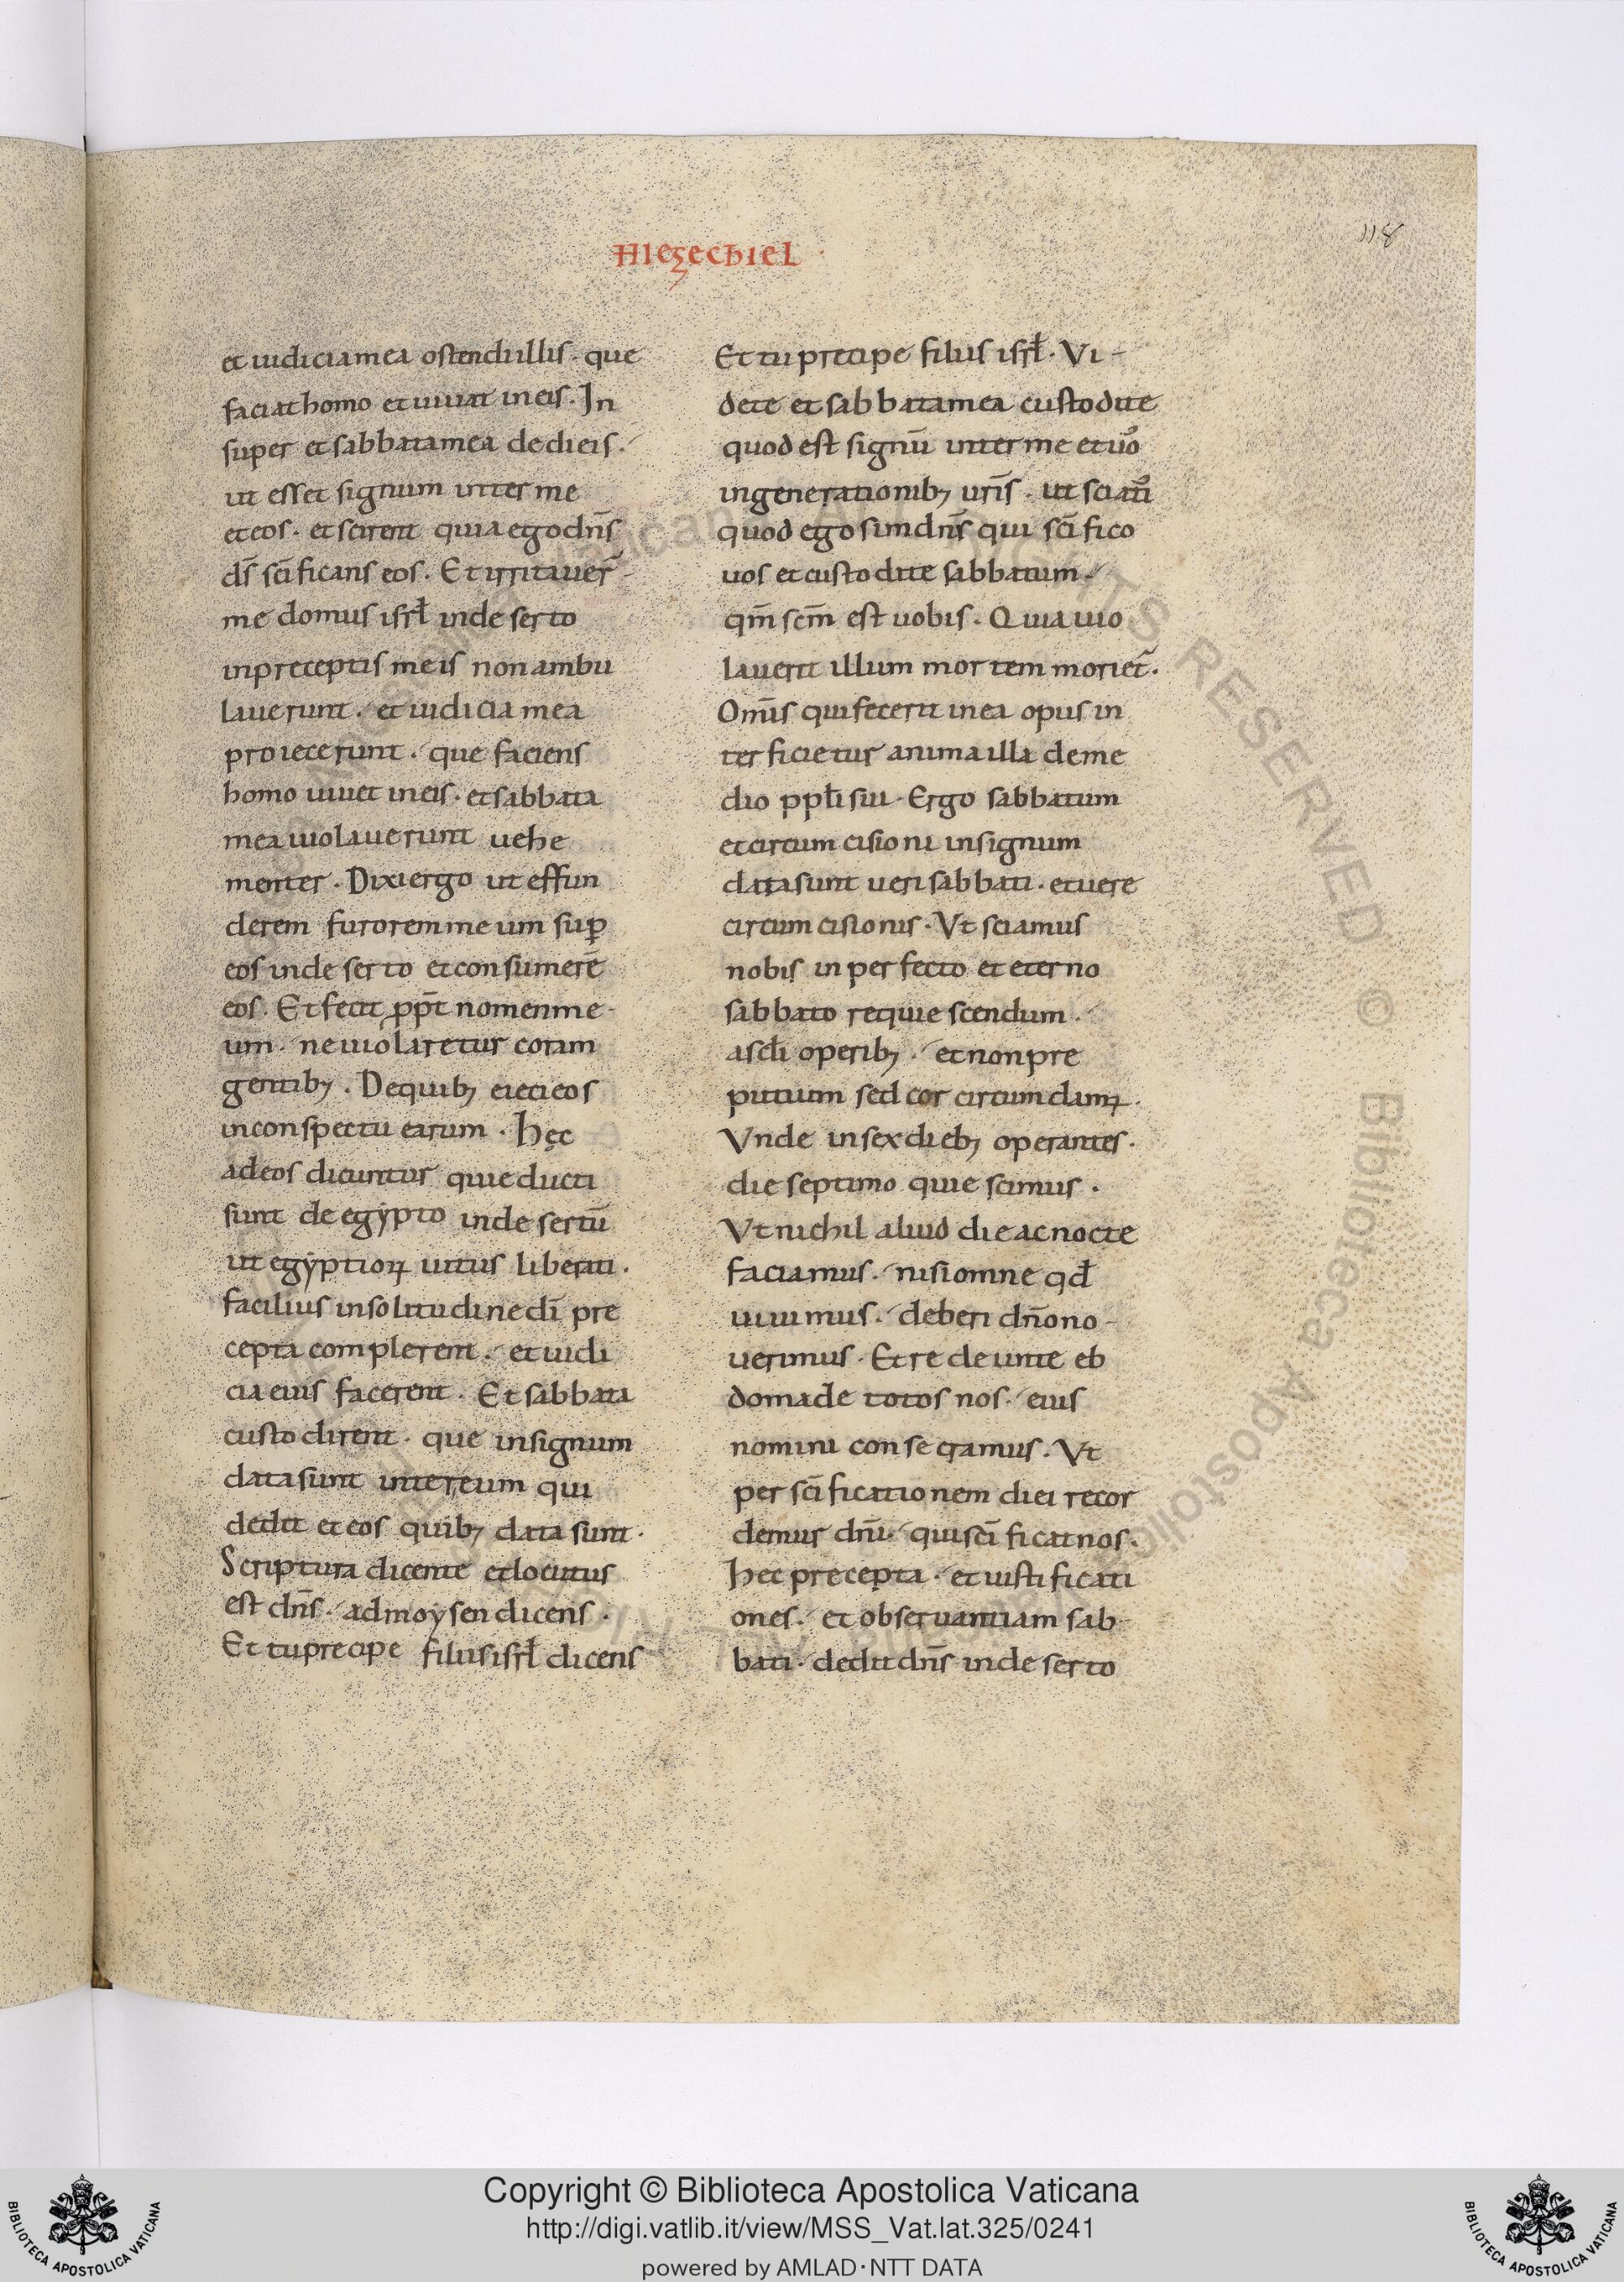 HIEZECHIEL
118
et iudicia mea ostendi illis · que
faciat homo et uiuat in eis · In
super et sabbata mea dedi eis ·
ut esset signum inter me
et eos · et scirent quia ego dn̄s
ds̄ sc̄ificans eos · Et irritauer̄
me domus isrł in deserto
in preceptis meis non ambu
lauerunt · et iudicia mea
proiecerunt · que faciens
homo uiuet in eis · et sabbata
mea uiolauerunt uehe
menter · Dixi ergo ut effun
derem furorem meum sup̄
eos in deserto et consumerē
eos · Et feci ꝓpt̄ nomen me
um · ne uiolaretur coram
gentibꝫ · De quibꝫ eieci eos
in conspectu earum · Hęc
ad eos dicuntur qui educti
sunt de egẏpto in desertū
ut egẏptioꝝ uitiis liberati ·
facilius in solitudine dī pre
cepta complerent · et iudi
cia eius facerent · Et sabbata
custodirent · que in signum
data sunt inter eum qui
dedit et eos quibꝫ data sunt ·
Scriptura dicente et locutus
est dn̄s · ad moẏsen dicens ·
Et tu precipe filiis isrł dicens
Et tu precipe filiis isrł · Vi
dete et sabbata mea custodite
quod est signū inter me et uo᷒
in generationibꝫ ur̄is · ut sciati᷒
quod ego sim dn̄s qui sc̄ifico
uos et custodite sabbatum ·
qm̄ sc̄m est uobis · Quia uio
lauerit illum mortem moriet̄ ·
Omīs qui fecerit in ea opus in
terficietur anima illa de me
dio ppłi sui · Ergo sabbatum
et circumcisio ni in signum
data sunt ueri sabbati · et uere
circumcisionis · Vt sciamus
nobis in perfecto et eterno
sabbato requiescendum ·
a scłi operibꝫ · et non pre
putium sed cor circumdamꝰ ·
Vnde in sex diebꝫ operantes ·
die septimo quiescimus ·
Vt nichil aliud die ac nocte
faciamus · nisi omne qđ
uiuimus · deberi dn̄o no
uerimus · Et redeunte eb
domade totos nos · eius
nomini consecramus · Vt
per sc̄ificationem diei recor
demur dn̄i · qui sc̄ificat nos ·
Hec precepta · et iustificati
ones · et obseruantiam sab
bati · dedit dn̄s in deserto
Copyright © Biblioteca Apostolica Vaticana
http://digi.vatlib.it/view/MSS_Vat.lat.325/0241
powered by AMLAD·NTT DATA
BIBLIOTECA APOSTOLICA VATICANA
BIBLIOTECA APOSTOLICA VATICANA